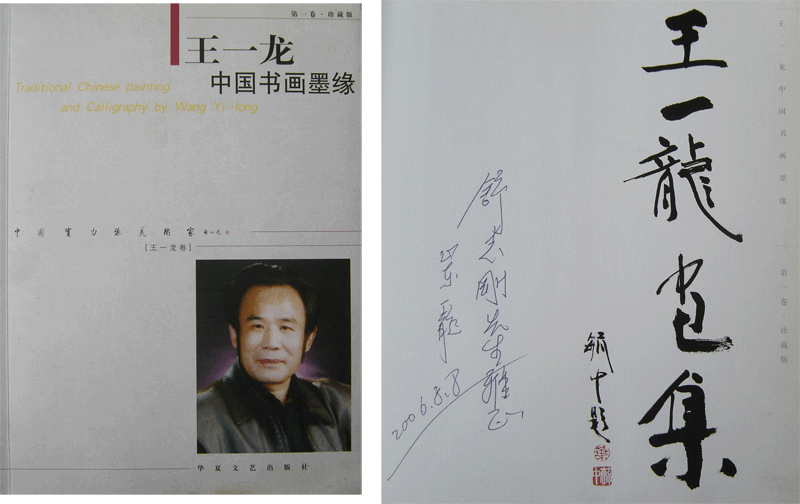 第一卷·珍藏版
王一龙
中国书画墨缘
Traditional Chinese painting
and Calligraphy by Wang Yi-long
中国实力派美术家
[王一龙卷]
华夏文艺出版社
王一龍書画集
毓中题
舒志刚先生雅正
2006.8.8
王一龙中国书画墨缘
第一卷·珍藏版